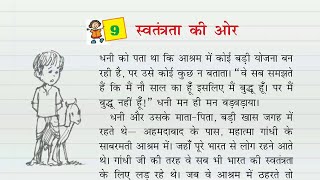 9 स्वतंत्रता की ओर
धनी को पता था कि आश्रम में कोई बड़ी योजना बन
रही है, पर उसे कोई कुछ न बताता। “वे सब समझते
हैं कि मैं नौ साल का हूँ इसलिए मैं बुद्धू हूँ। पर मैं
बुद्धू नहीं हूँ!” धनी मन ही मन बड़बड़ाया।
धनी और उसके माता-पिता, बड़ी खास जगह में
रहते थे— अहमदाबाद के पास, महात्मा गांधी के
साबरमती आश्रम में। जहाँ पूरे भारत से लोग रहने आते
थे। गांधी जी की तरह वे सब भी भारत की स्वतंत्रता
के लिए लड़ रहे थे। जब वे आश्रम में ठहरते तो